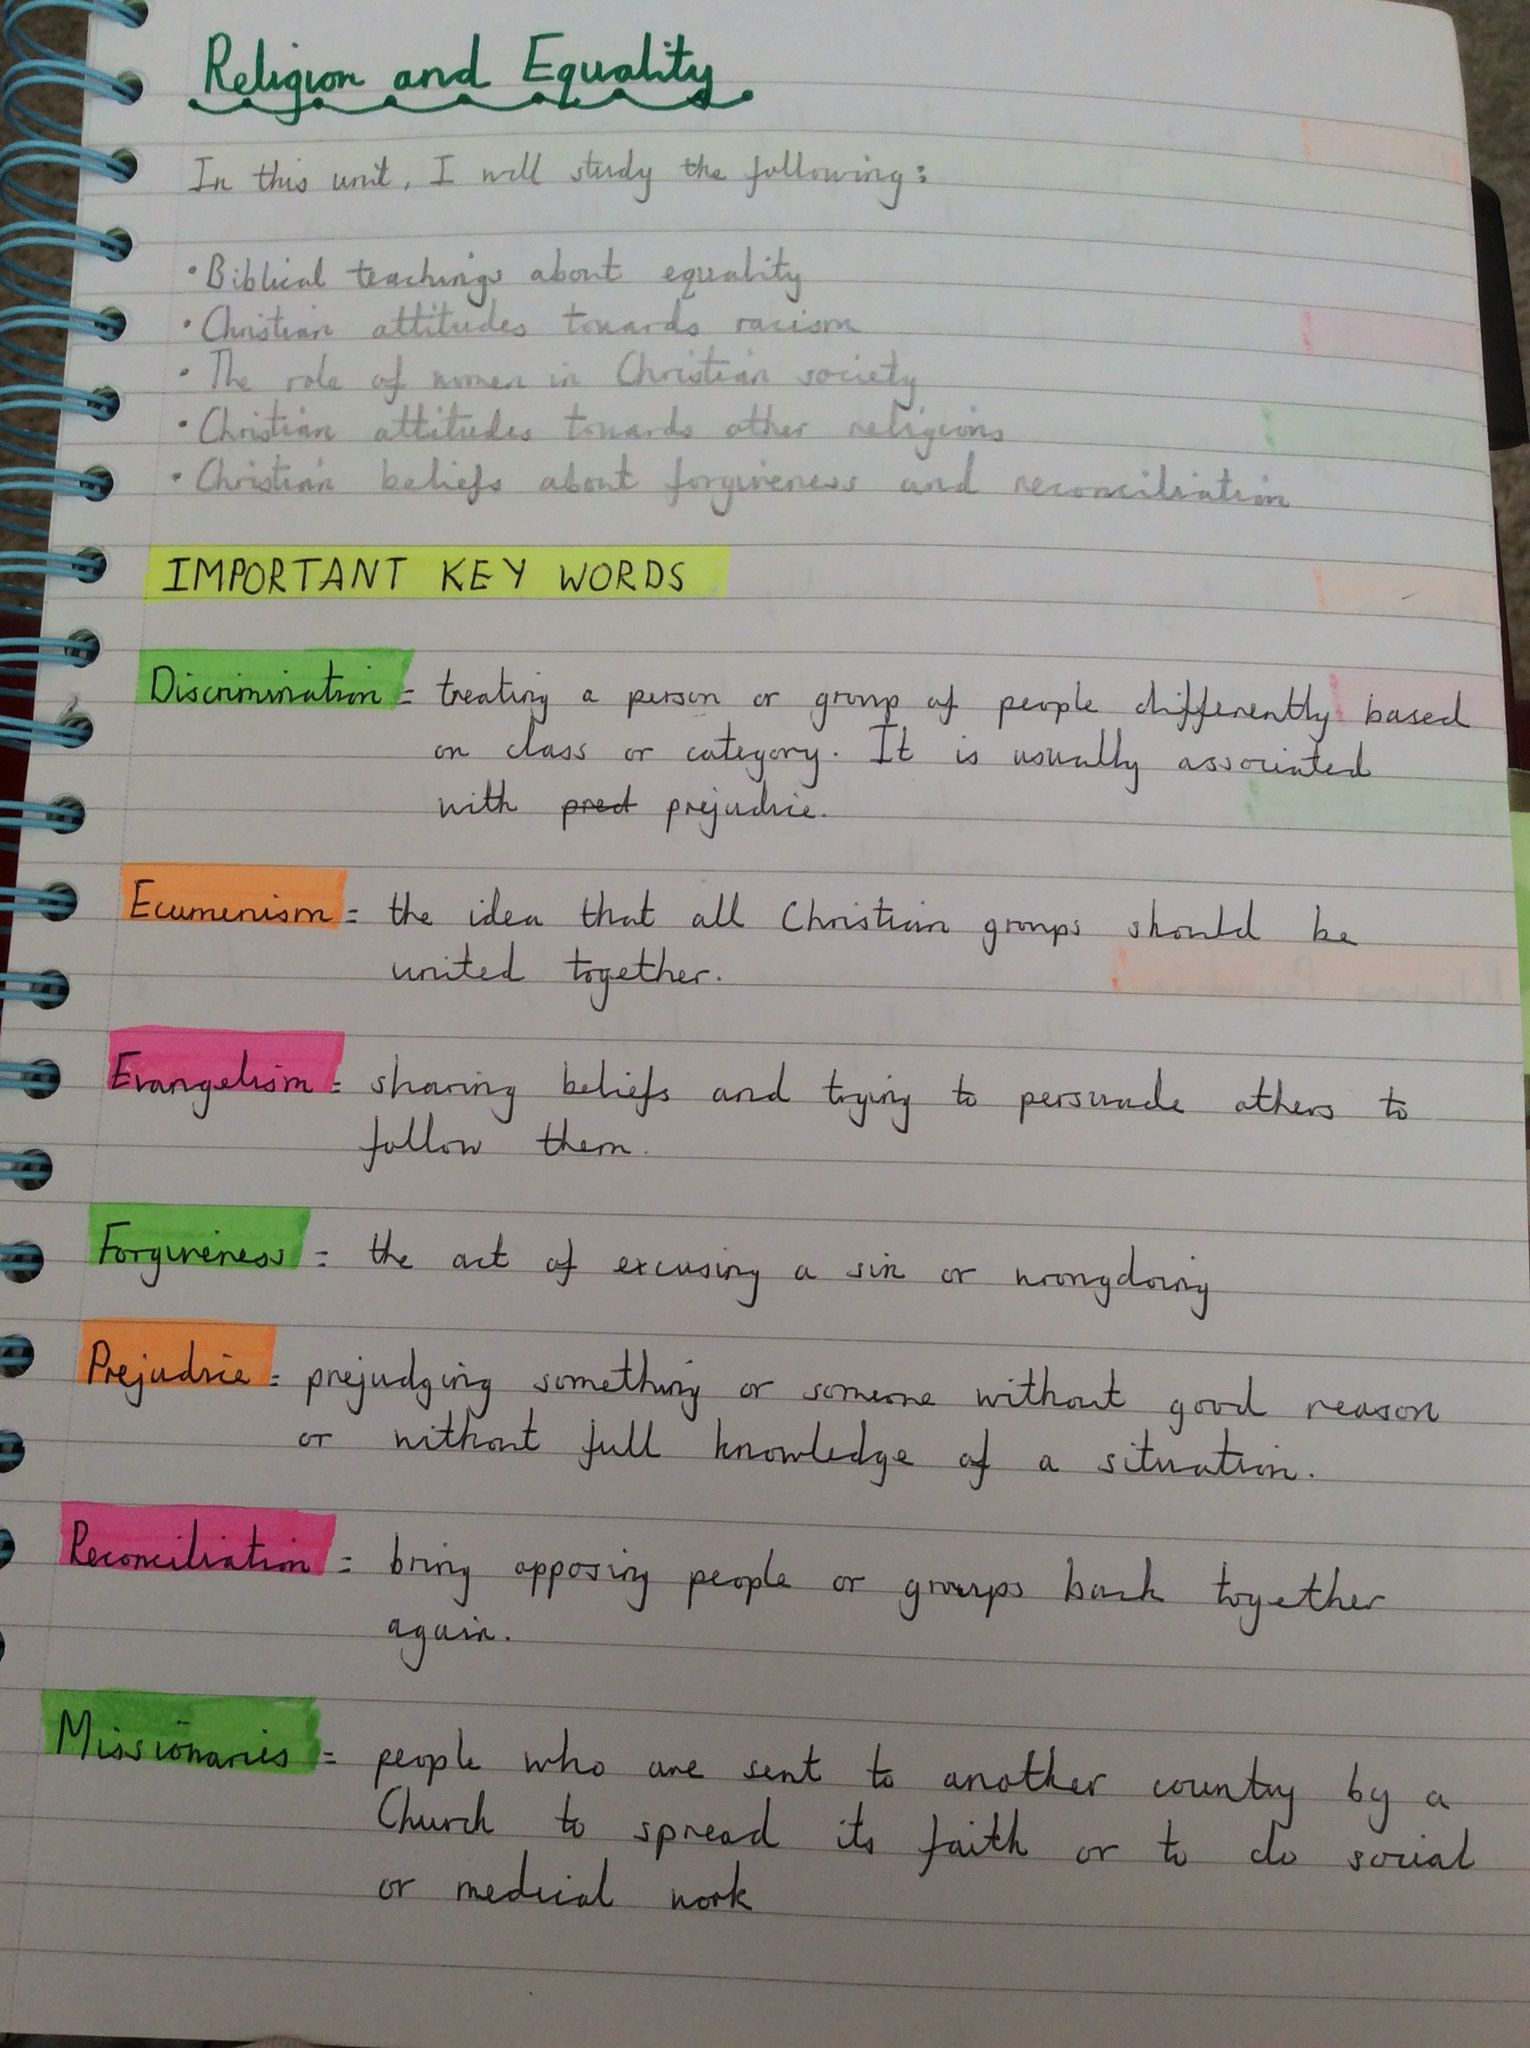 Religion and Equality
In this unit, I will study the following:
• Biblical teachings about equality
• Christian attitudes towards racism
• The role of women in Christian society
• Christian attitudes towards other religions
• Christian beliefs about forgiveness and reconciliation
IMPORTANT KEY WORDS
Discrimination = treating a person or group of people differently based
on class or category. It is usually associated
with pred prejudice.
Ecumenism = the idea that all Christian groups should be
united together.
Evangelism = sharing beliefs and trying to persuade others to
follow them.
Forgiveness = the act of excusing a sin or wrongdoing
Prejudice = prejudging something or someone without good reason
or without full knowledge of a situation.
Reconciliation = bring opposing people or groups back together
again.
Missionaries = people who are sent to another country by a
Church to spread its faith or to do social
or medical work